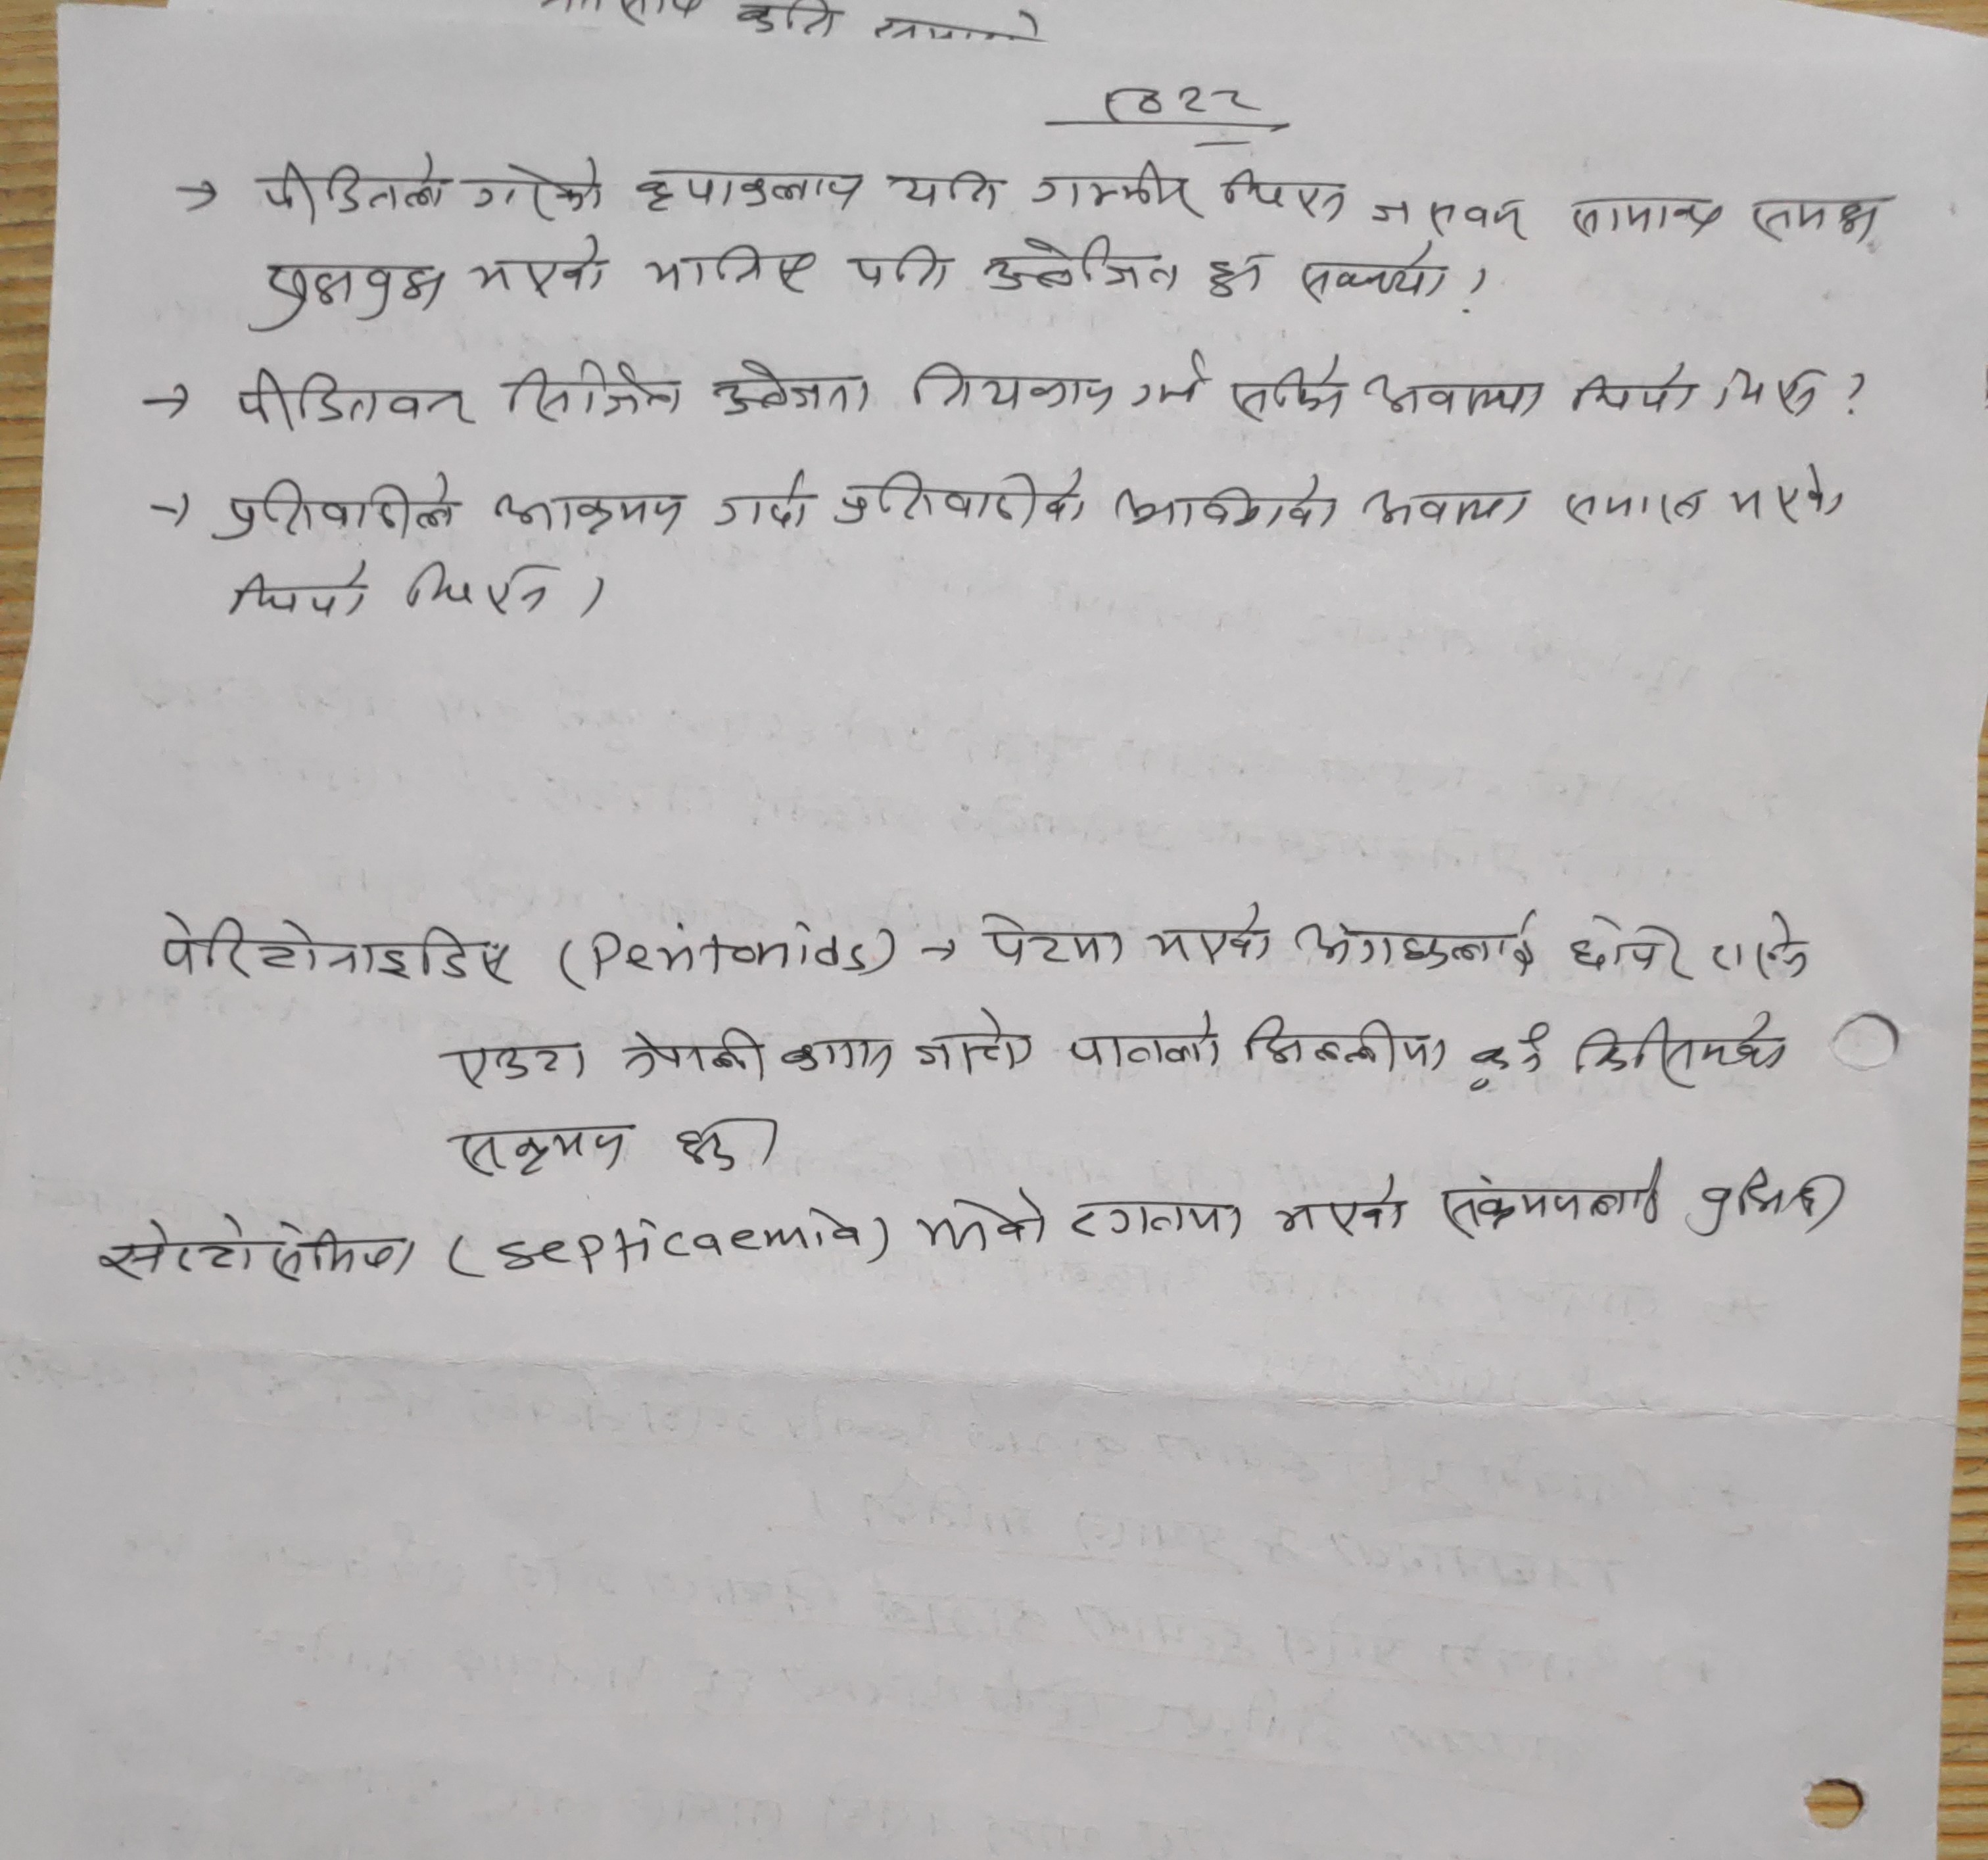 कति लाग्यो
१८२२
→ पीडितले गरेको क्रृयाकलाप यति गम्भीर थियो जसबाट सामान्य समझ
सुझबुझ भएको मानिस पनि उत्तेजित हुन सक्थ्यो।
→ पीडितबाट सिर्जित उत्तेजना नियन्त्रण गर्न सकिने अवस्था थियो थिएन ?
→ प्रतिवादीले आक्रमण गर्दा प्रतिवादीको आवेगको अवस्था समाप्त भएको
थियो थिएन।
पेरिटोनाइडिस (Peritonids) → पेटमा भएको अंगहरुलाई छोपेर राख्ने
एउटा नेपाली कागज जत्तिको पातलो झिल्लीमा कुनै किसिमको
संक्रमण हुनु।
सेप्टोसेमिया (septicaemia) भनेको रगतमा भएको संक्रमणलाई बुझिन्छ।